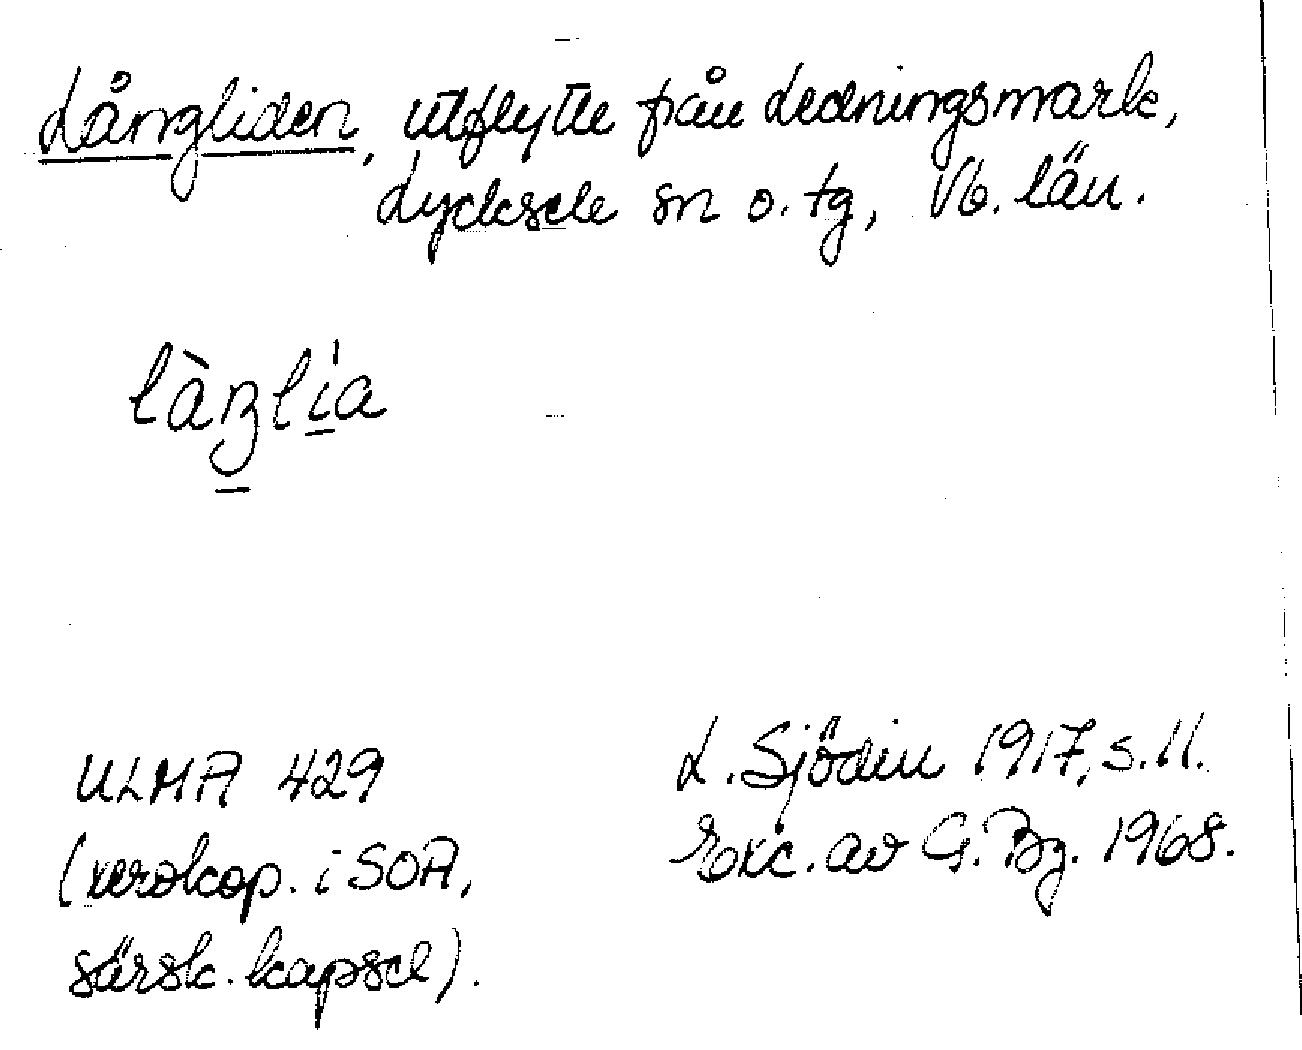 Långliden, utflytte från Ledningsmark,
Lycksele sn o. tg, Vb. län.
làŋlia
ULMA 429
(xerokop. i SOA,
särsk. kapsel).
L. Sjödin 1917, s. 11.
Exc. av G. Bg. 1968.